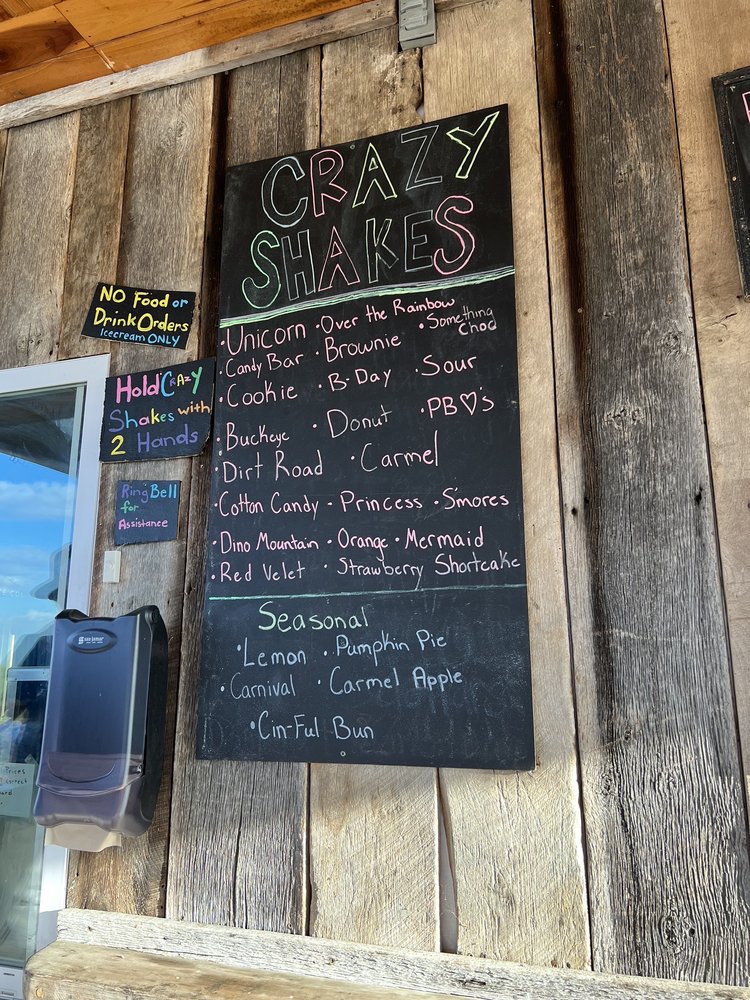 CRAZY
SHAKES
• Unicorn • Over the Rainbow
• Candy Bar • Brownie • Something Chod
• Cookie • B-Day • Sour
• Buckeye • Donut • PB♡'s
• Dirt Road • Carmel
• Cotton Candy • Princess • S'mores
• Dino Mountain • Orange • Mermaid
• Red Velet • Strawberry Shortcake
Seasonal
• Lemon • Pumpkin Pie
• Carnival • Carmel Apple
• Cin-Ful Bun
NO Food or
Drink Orders
Icecream ONLY
Hold CRAZY
Shakes with
2 Hands
Ring Bell
for
Assistance
san jamar
Prices